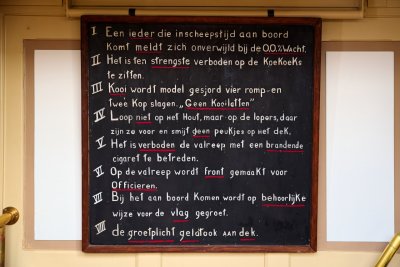 I Een ieder die inscheepstijd aan boord
komt meldt zich onverwijld bij de O.O.% Wacht.
II Het is ten strengste verboden op de KoeKoeKs
te zitten.
III Kooi wordt model gesjord vier romp-en
twee Kop slagen. „Geen Kooiletten"
IV Loop niet op Het Hout, maar op de lopers, daar
zijn ze voor en smijt geen peukjes op het deK.
V Het is verboden de valreep met een brandende
cigaret te betreden.
VI Op de valreep wordt front gemaakt voor
Officieren.
VII Bij het aan boord Komen wordt op behoorlijke
wijze voor de vlag gegroet.
VIII de groetplicht geldt ook aan dek.